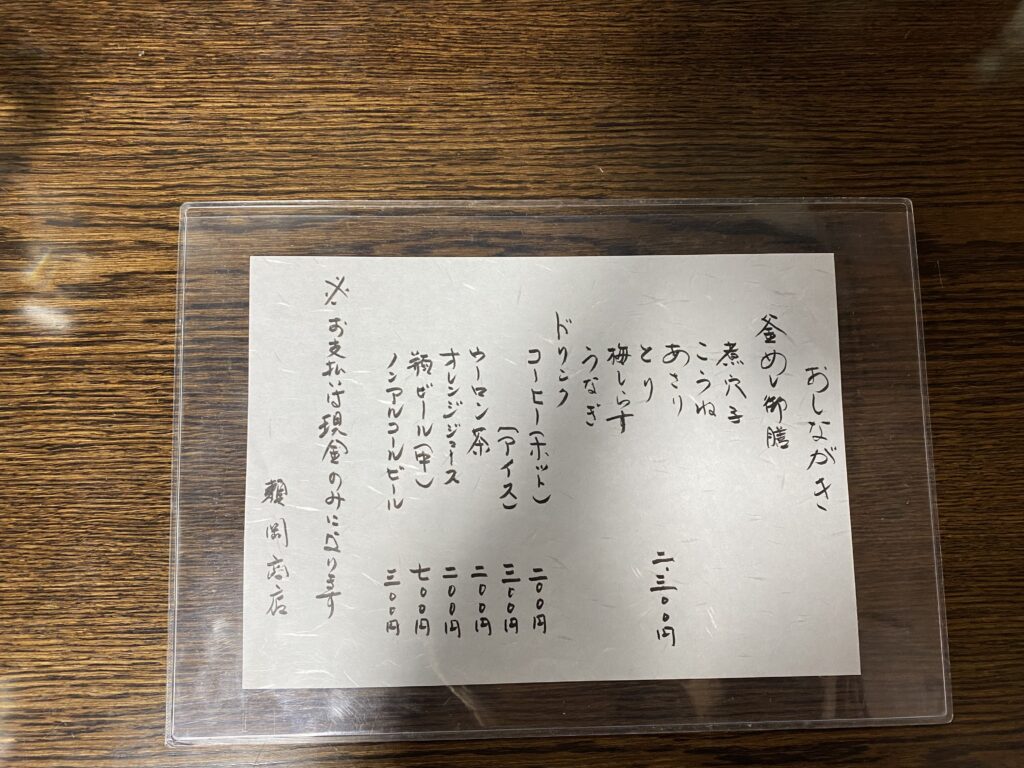 おしながき
釜めし御膳
煮穴子
こうね
あさり
とり 二、三〇〇円
梅しらす
うなぎ
ドリンク
コーヒー(ホット) 二〇〇円
(アイス) 三〇〇円
ウーロン茶 二〇〇円
オレンジジュース 二〇〇円
瓶ビール(中)七〇〇円
ノンアルコールビール 三〇〇円
※お支払は現金のみになります
頼岡商店